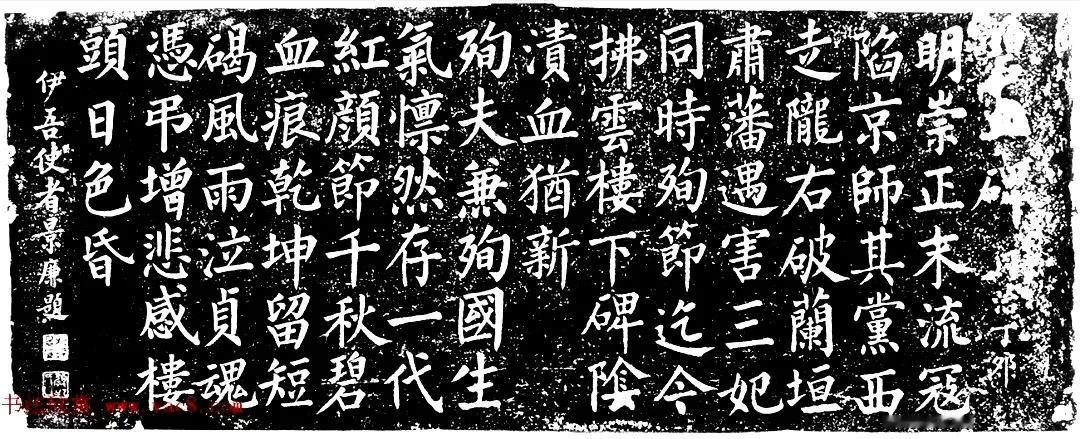 碑 丁卯
明崇正末流寇
陷京師其黨西
走隴右破蘭垣
肅藩遇害三妃
同時殉節迄今
拂雲樓下碑隂
漬血猶新
殉夫兼殉國生
氣懍然存一代
紅顏節千秋碧
血痕乾坤留短
碣風雨泣貞魂
憑弔增悲感樓
頭日色昏
伊吾使者景廉題